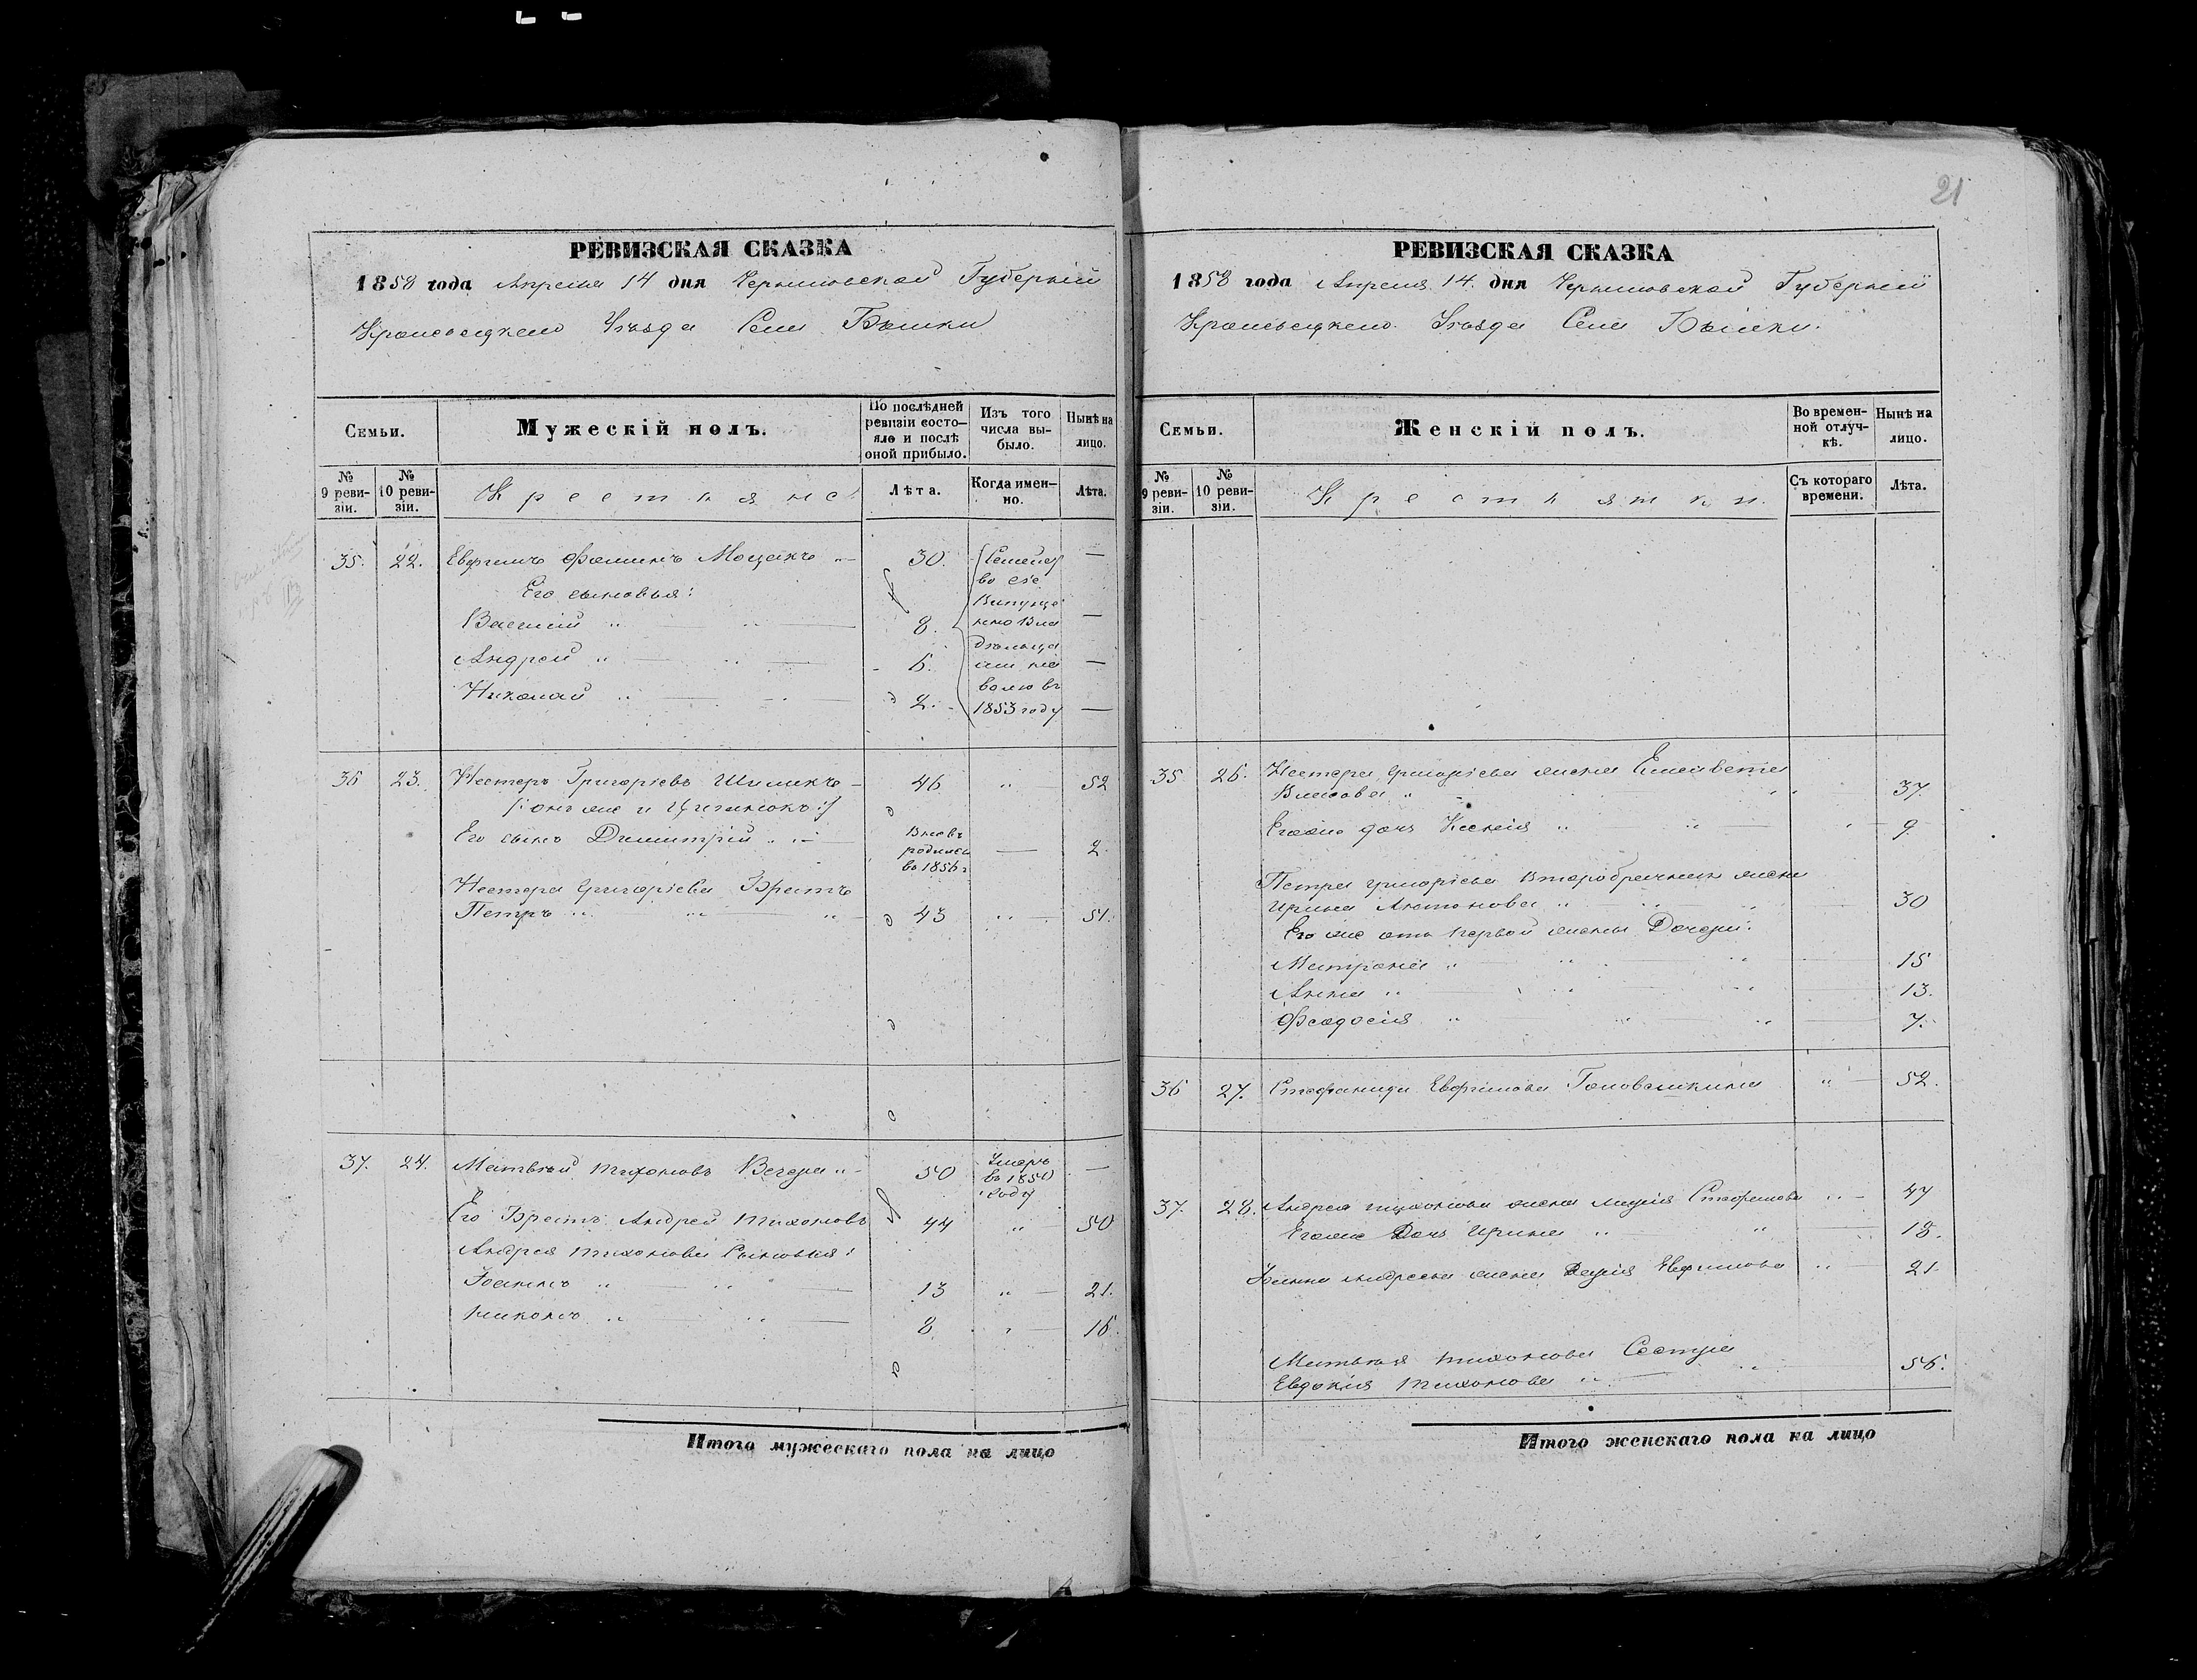 21
РЕВИЗСКАЯ СКАЗКА
1858 года Апреля 14 дня Черниговской Губерніи
Кролевецкого Уѣзда Села
Семьи.
Мужескій полъ.
По послѣдней ревизіи состояло и послѣ оной прибыло.
Изъ того числа выбыло.
Нынѣ на лицо.
№ 9 ревизіи.
№ 10 ревизіи.
Крестьяне
Лѣта.
Когда именно.
Лѣта.
35. 22. Евфимъ Фоминъ 30. —
Его сыновья:
Василій „ 8. —
Андрей „ 6. —
Николай „ 2. —
Семейство его
на волю въ
1853 году
36 23. Нестеръ Григорьевъ 46 „ 52
/:онъ же и
Его сынъ Димитрій „ Вновь родился въ 1856 г — 2.
Нестера Григорьева Братъ
Петръ „ 43 „ 51.
37. 24. Матвѣй Тихоновъ 50 Умеръ въ 1850 году —
Его Братъ Андрей Тихоновъ 44 „ 50
Андрея Тихонова Сыновья:
Іоаннъ „ 13 „ 21.
Никонъ „ 8 „ 16.
Итого мужескаго пола на лицо
РЕВИЗСКАЯ СКАЗКА
1858 года Апреля 14. дня Черниговской Губерніи
Кролевецкого Уѣзда Села
Семьи.
Женскій полъ.
Во временной отлучкѣ.
Нынѣ на лицо.
№ 9 ревизіи.
№ 10 ревизіи.
Крестьянки.
Съ котораго времени.
Лѣта.
35 26. Нестера Григорьева жена Елисавета
Власова „ 37.
Егоже дочь Ксенія „ 9
Петра Григорьева Второбрачная жена
Ирина Антонова „ 30
Его же отъ первой жены Дочери:
Матрона „ 15
Анна „ 13.
Феодосія „ 7.
36 27. Стефанида Евфимова Головашкина „ 52.
37. 28. Андрея Тихонова жена Марія Стефанова „ 47
Егоже Дочь Ирина „ 18.
Іоанна Андреева жена Евфимова „ 21.
Матвѣя Тихонова Сестра
Евдокія Тихонова „ 56.
Итого женскаго пола на лицо